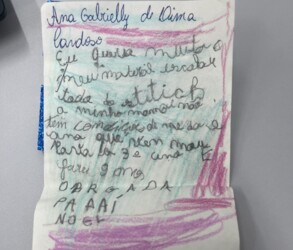 Ana Gabrielly de Lima
Cardoso
Eu queria muito o
meu material escola
tado do stitich
a minha mamãe não
tem condições de me da e
ana que vem vou
para la 3 e ano te
faru 9 anos
OBRGADA
PAPAI
NOEL